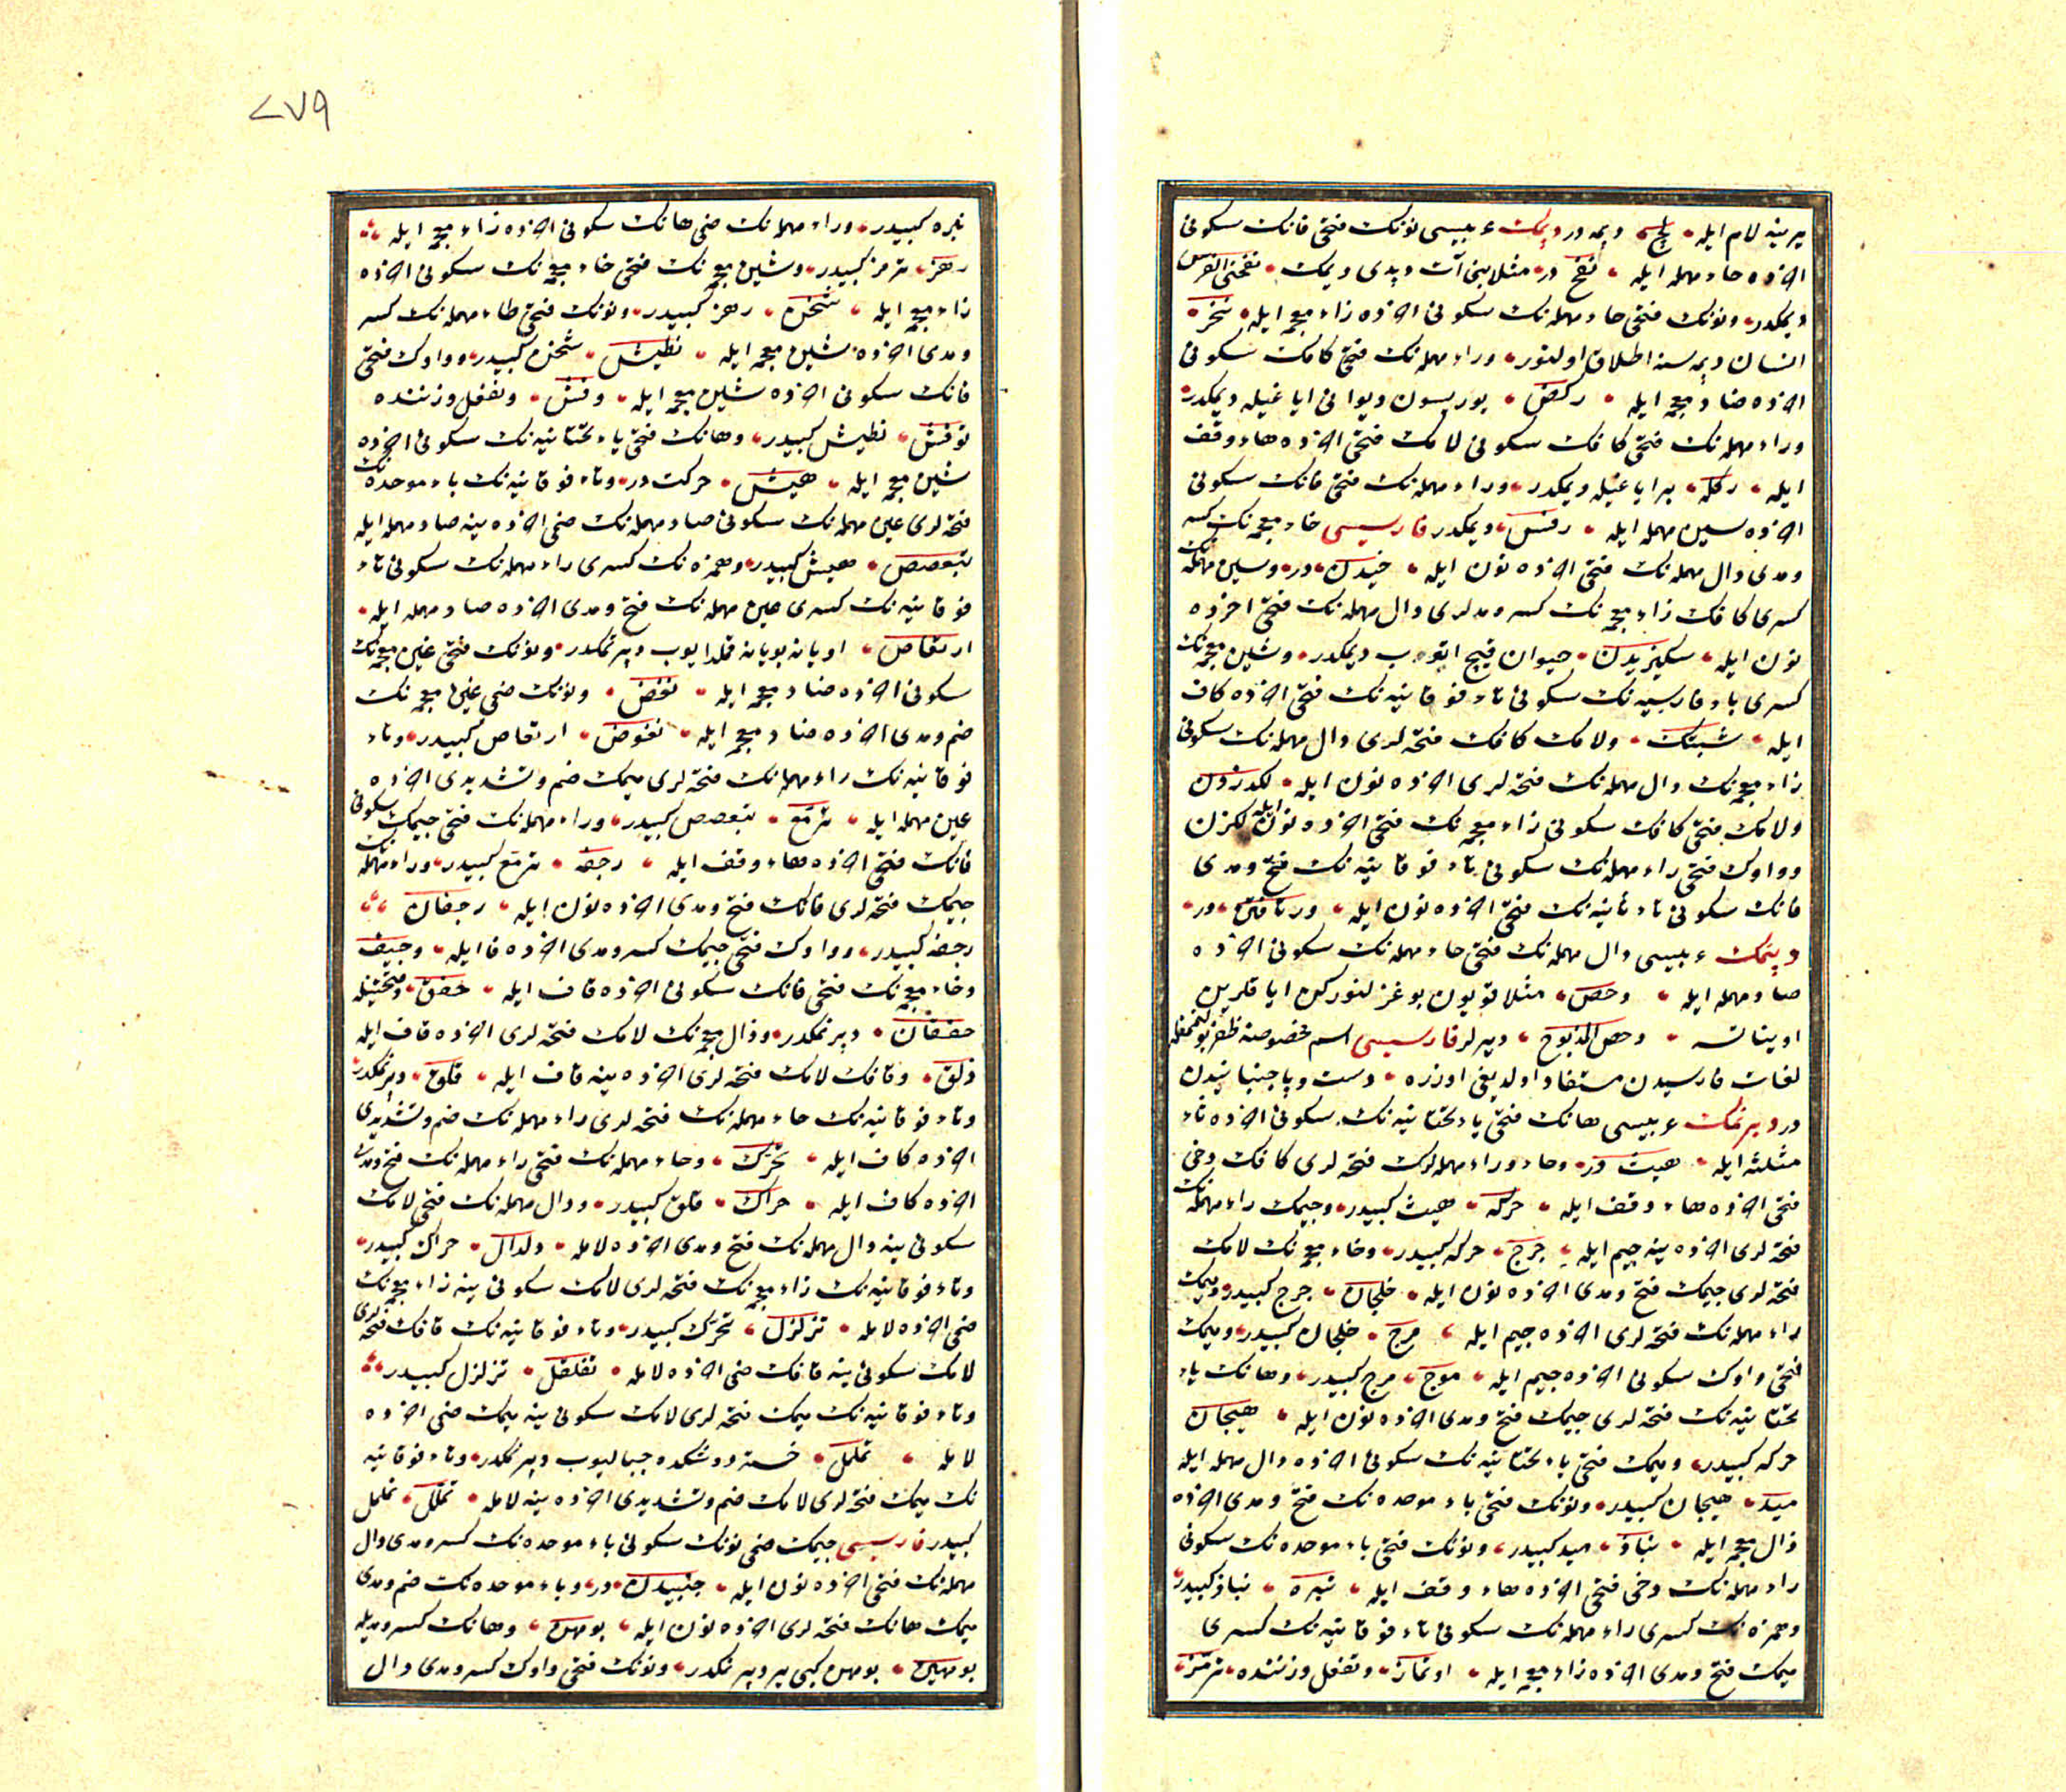 یرینه لام ایله • لج • دپمه در دپمک عربیسی نونک فتحی فانک سکونی
اخرده حاء مهمله ایله • نفح در • مثلا بنی آت دپدی دیمک • نفحنی الفرس
دیمکدر • ونونک فتحی حاء مهمله نک سکونی اخرده زاء معجمه ایله • نحز
انسان دپمه سنه اطلاق اولنور • وراء مهمله نک فتحی کافک سکونی
اخرده ضاد معجمه ایله • رکض • یوریسون دیو انی ایاغیله دپمکدر
وراء مهمله نک فتحی کافک سکونی لامک فتحی اخرده هاء وقف
ایله • رکله • بر ایاغیله دپمکدر • وراء مهمله نک فتحی فانک سکونی
اخرده سین مهمله ایله • رفس • دپمکدر فارسیسی خاء معجمه نک کسر
ومدی دال مهمله نک فتحی اخرده نون ایله • خیدن • در • وسین مهمله نک
کسری کافک زاء معجمه نک کسر ومدلری دال مهمله نک فتحی اخرده
نون ایله • سکیزیدن • حیوان قیچ اتوب دپمکدر • وشین معجمه نک
کسری باء فارسیه نک سکونی تاء فوقانیه نک فتحی اخرده کاف
ایله • شپتک • ولامک کافک فتحه لری دال مهمله نک سکونی
زاء معجمه نک دال مهمله نک فتحه لری اخرده نون ایله • لکدزدن
ولامک فتحی کافک سکونی زاء معجمه نک فتحی اخرده نون ایله لکزن
وواوک فتحی راء مهمله نک سکونی تاء فوقانیه نک فتح ومدی
فانک سکونی تاء ثانیه نک فتحی اخرده نون ایله • ورتافتن • در •
دپنمک عربیسی دال مهمله نک فتحی حاء مهمله نک سکونی اخرده
صاد مهمله ایله • دحص • مثلا قویون بوغزلنورکن ایاقلرین
اویناتسه • دحص المذبوح • دیرلر فارسیسی اسم مخصوصنه ظفر بولنمغله
لغات فارسیدن مستفاد اولدیغی اوزره • دست وپا جنبانیدن
در دپرنمک عربیسی هانک فتحی یاء تحتانیه نک سکونی اخرده ثاء
مثلثه ایله • هیث در • وحاء وراء مهمله لرک فتحه لری کافک دخی
فتحی اخرده هاء وقف ایله • حرکه • هیث کبیدر • وجیمک راء مهمله نک
فتحه لری اخرده ینه جیم ایله • جرج • حرکه کبیدر • وخاء معجمه نک لامک
فتحه لری جیمک فتح ومدی اخرده نون ایله • خلجان • جرج کبیدر ومیمک
راء مهمله نک فتحه لری اخرده جیم ایله • مرج • خلجان کبیدر • ومیمک
فتحی واوک سکونی اخرده جیم ایله • موج • مرج کبیدر • وهانک یاء
تحتانیه نک فتحه لری جیمک فتح ومدی اخرده نون ایله • هیجان
حرکه کبیدر • ومیمک فتحی یاء تحتانیه نک سکونی اخرده دال مهمله ایله
مید • هیجان کبیدر • ونونک فتحی باء موحده نک فتح ومدی اخرده
ذال معجمه ایله • نباذ • مید کبیدر • ونونک فتحی باء موحده نک سکونی
راء مهمله نک دخی فتحی اخرده هاء وقف ایله • نبره • نباذ کبیدر
وهمزه نک کسری راء مهمله نک سکونی تاء فوقانیه نک کسری
میمک فتح ومدی اخرده زاء معجمه ایله • ارتماز • وتفعل وزننده • ترمز
نبره کبیدر • وراء مهمله نک ضمی هانک سکونی اخرده زاء معجمه ایله
رهز • ترمز کبیدر • وشین معجمه نک فتحی خاء معجمه نک سکونی اخرده
زاء معجمه ایله • شخز • رهز کبیدر • ونونک فتحی طاء مهمله نک کسر
ومدی اخرده شین معجمه ایله • نطیش • شخز کبیدر • وواوک فتحی
فانک سکونی اخرده شین معجمه ایله • وفش • وتفعل وزننده
توفش • نطیش کبیدر • وهانک فتحی یاء تحتانیه نک سکونی اخرده
شین معجمه ایله • هیش • حرکت در • وتاء فوقانیه نک باء موحده نک
فتحه لری عین مهمله نک سکونی صاد مهمله نک ضمی اخرده ینه صاد مهمله ایله
تبعصص • هیش کبیدر • وهمزه نک کسری راء مهمله نک سکونی تاء
فوقانیه نک کسری عین مهمله نک فتح ومدی اخرده صاد مهمله ایله •
ارتعاص • اویانه بویانه قملدایوب دپرنمکدر • ونونک فتحی غین معجمه نک
سکونی اخرده ضاد معجمه ایله • نغض • ونونک ضمی غین معجمه نک
ضم ومدی اخرده ضاد معجمه ایله • نغوض • ارتعاص کبیدر • وتاء
فوقانیه نک راء مهمله نک فتحه لری میمک ضم وتشدیدی اخرده
عین مهمله ایله • ترمع • تبعصص کبیدر • وراء مهمله نک فتحی جیمک سکونی
فانک فتحی اخرده هاء وقف ایله • رجفه • ترمع کبیدر • وراء مهمله نک
جیمک فتحه لری فانک فتح ومدی اخرده نون ایله • رجفان
رجفه کبیدر • وواوک فتحی جیمک کسر ومدی اخرده فا ایله • وجیف
وخاء معجمه نک فتحی فانک سکونی اخرده قاف ایله • خفق • وفتحتیله
خفقان • دپرنمکدر • وذال معجمه نک لامک فتحه لری اخرده قاف ایله
ذلق • وقافک لامک فتحه لری اخرده ینه قاف ایله • قلق • دپرنمکدر
وتاء فوقانیه نک حاء مهمله نک فتحه لری راء مهمله نک ضم وتشدیدی
اخرده کاف ایله • تحرک • وحاء مهمله نک فتحی راء مهمله نک فتح ومدی
اخرده کاف ایله • حراک • قلق کبیدر • ودال مهمله نک فتحی لامک
سکونی ینه دال مهمله نک فتح ومدی اخرده لامله • دلدال • حراک کبیدر •
وتاء فوقانیه نک زاء معجمه نک فتحه لری لامک سکونی ینه زاء معجمه نک
ضمی اخرده لامله • تزلزل • تحرک کبیدر • وتاء فوقانیه نک قافک فتحه لری
لامک سکونی ینه قافک ضمی اخرده لامله • تقلقل • تزلزل کبیدر
وتاء فوقانیه نک میمک فتحه لری لامک سکونی ینه میمک ضمی اخرده
لامله • تململ • خسته دوشکده جبالیوب دپرنمکدر • وتاء فوقانیه
نک میمک فتحه لری لامک ضم وتشدیدی اخرده ینه لامله • تملل • تململ
کبیدر فارسیسی جیمک ضمی نونک سکونی باء موحده نک کسر ومدی دال
مهمله نک فتحی اخرده نون ایله • جنبیدن • در • وباء موحده نک ضم ومدی
میمک هانک فتحه لری اخرده نون ایله • بومهن • وهانک کسر ومدیله
بومهین • بومهن کبی یر دپرنمکدر • ونونک فتحی واوک کسر ومدی دال
۲۷۹